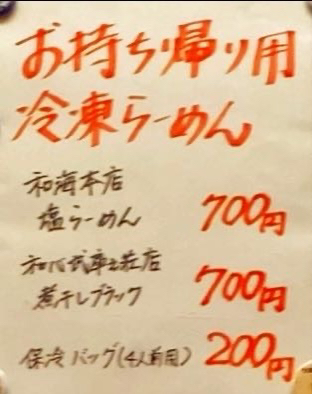 お持ち帰り用
冷凍らーめん
和海本店
塩らーめん 700円
和心武庫之荘店
煮干しブラック 700円
保冷バッグ(4人前用) 200円